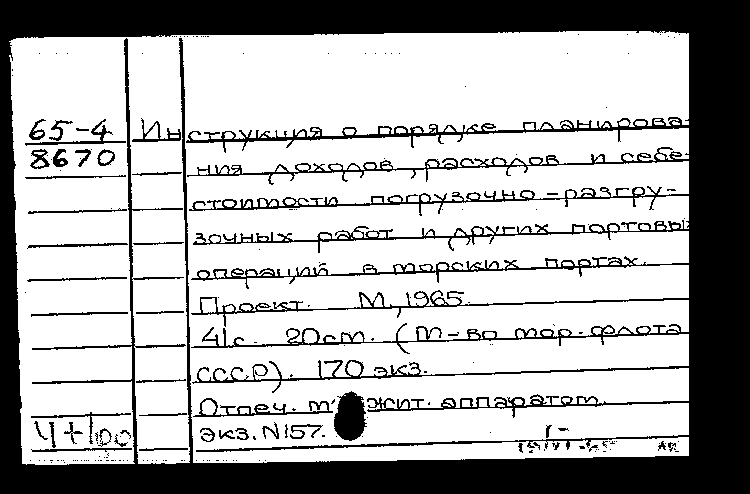 65-4 Инструкция о порядке планирова-
8670 ния доходов, расходов и себе-
стоимости погрузочно-разгру-
зочных работ и других портовых
операций в морских портах.
Проект. М., 1965.
41с. 20см. (М-во мор. флота
СССР). 170 экз.
Отпеч. множит. аппаратом.
Ч+100 экз. N157.